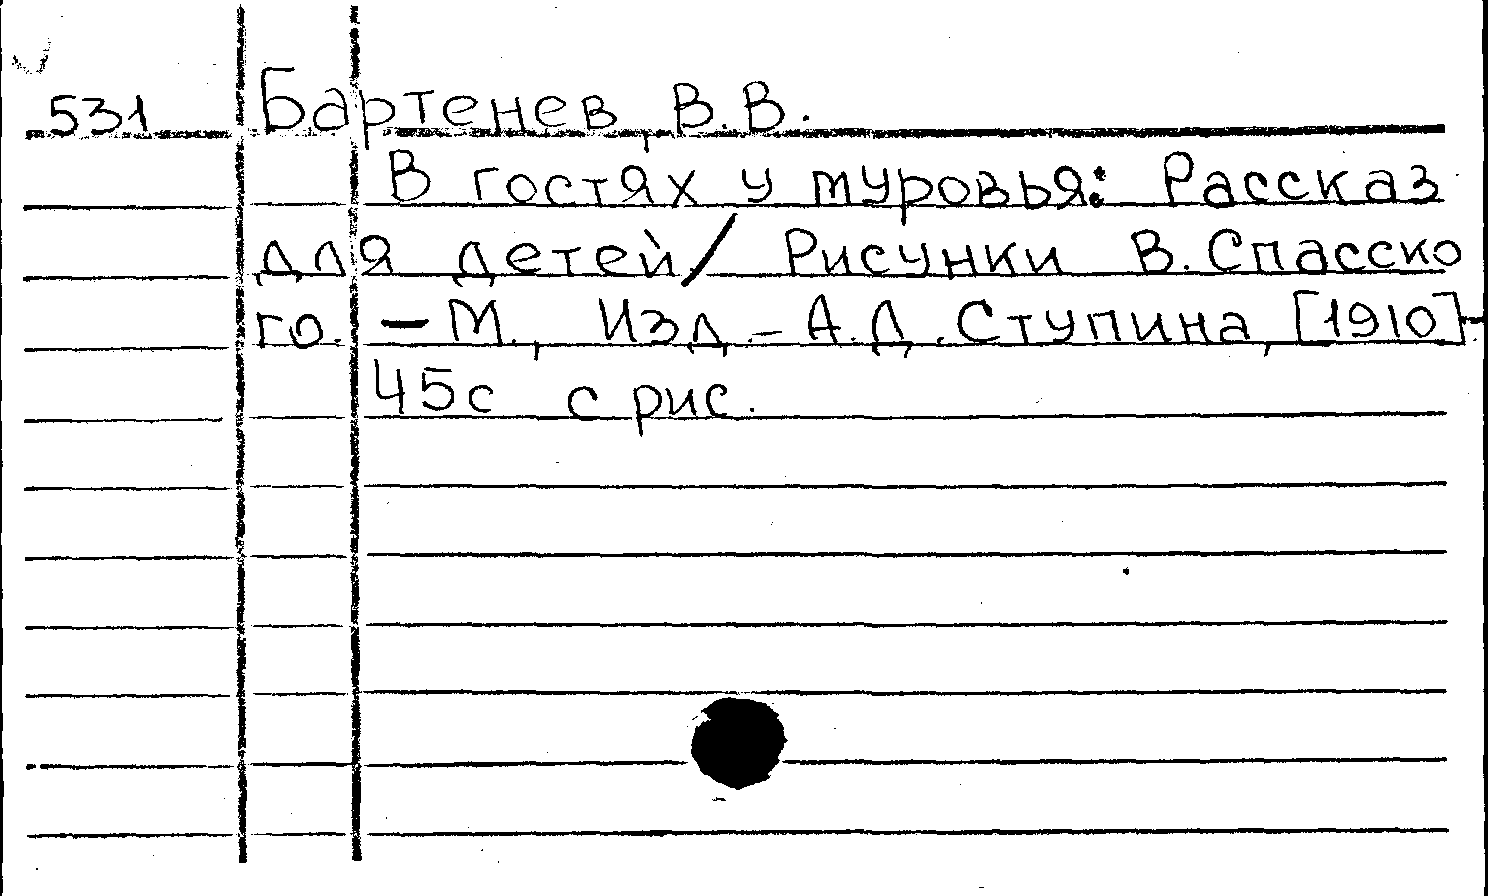 531 Бартенев, В.В.
В гостях у туровья: Рассказ
для детей / Рисунки В. Спасско
го. — М., Изд - А.Д. Ступина, [1910]-
45с с рис.